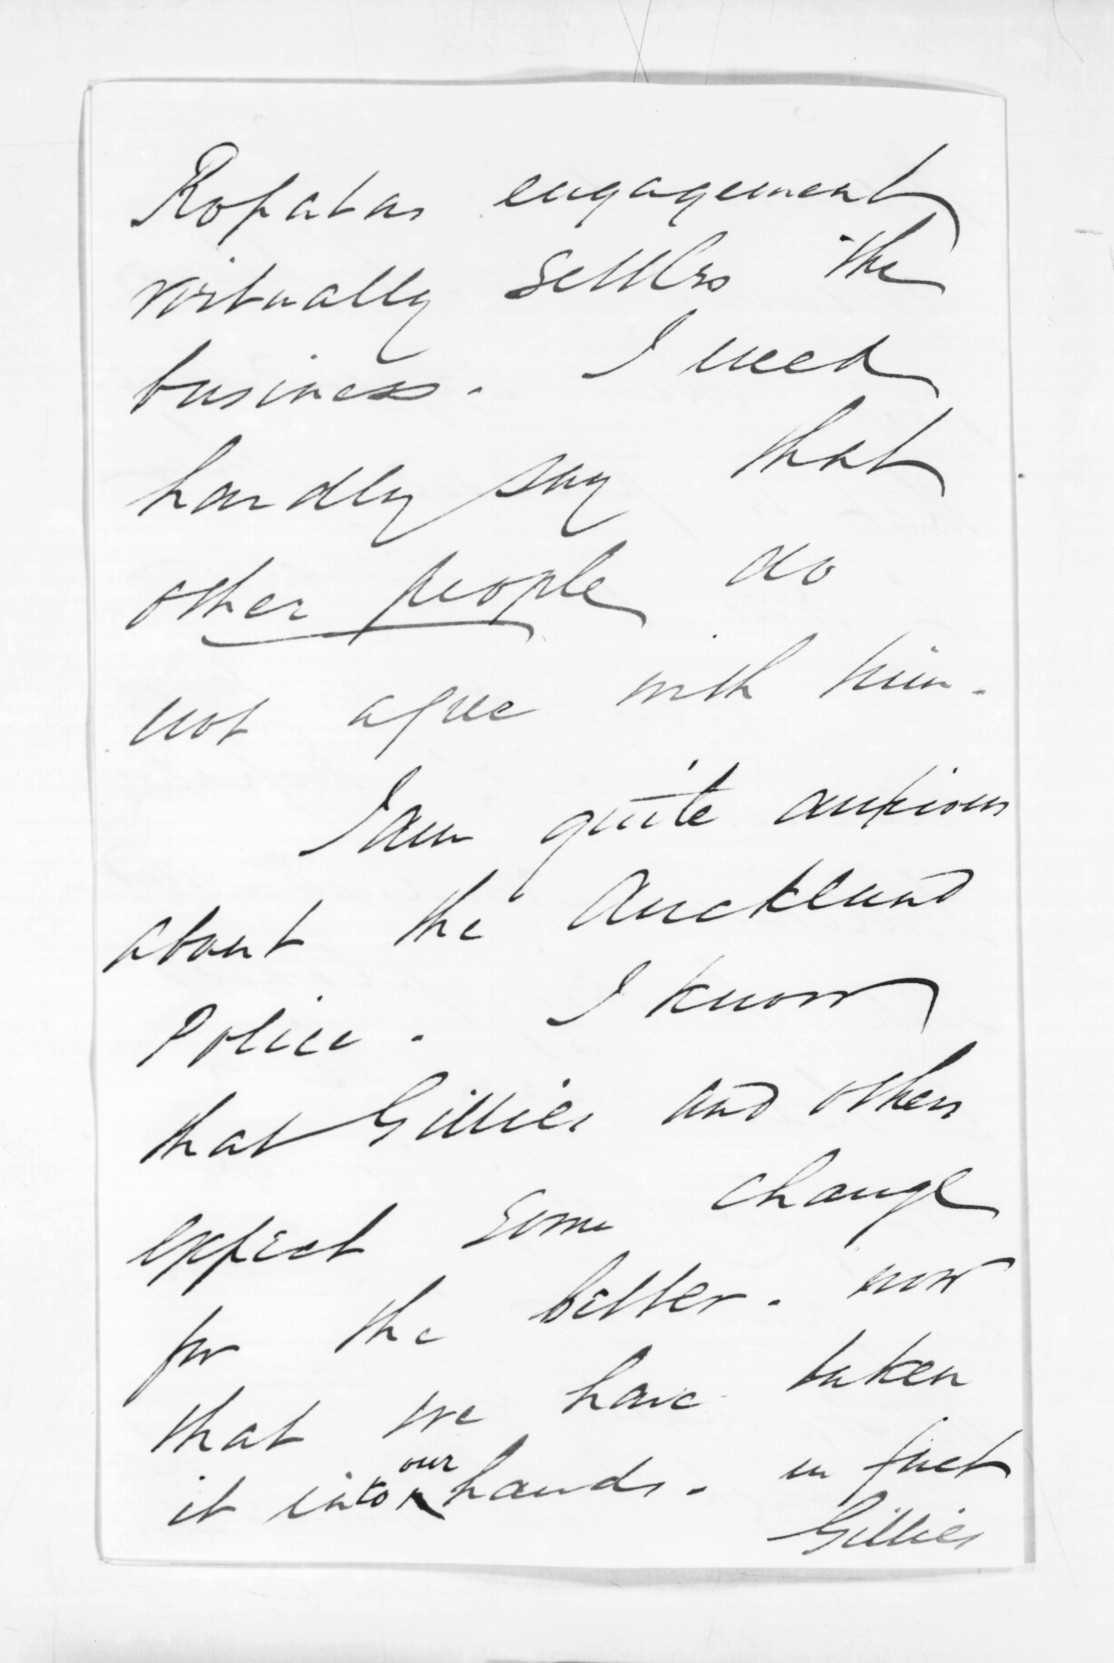 Ropatas engagement
virtually settles the
business. I need
hardly say that
other people do
not agree with him.
I am quite anxious
about the Auckland
Police. I know
that Gillies and others
expect some change
for the better. now
that we have taken
it into our hands. in fact
Gillies